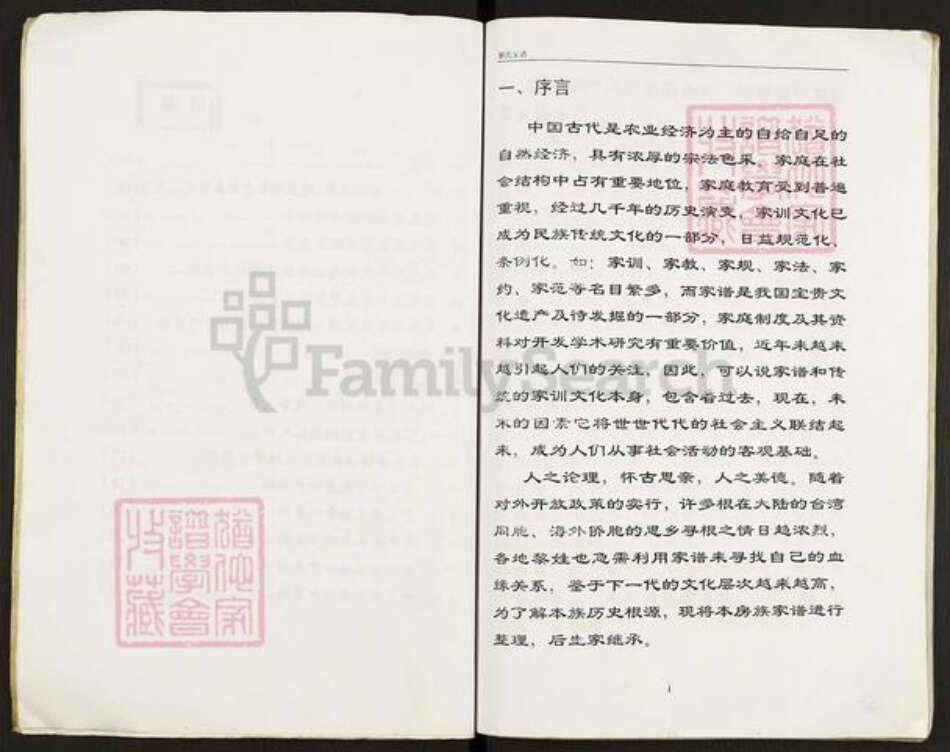 一、序言
中国古代是农业经济为主的自给自足的
自然经济，具有浓厚的宗法色采。家庭在社
会结构中占有重要地位，家庭教育受到普遍
重视，经过几千年的历史演变，家训文化已
成为民族传统文化的一部分，日益规范化、
条例化。如：家训、家教、家规、家法、家
约、家范等名目繁多，而家谱是我国宝贵文
化遗产及待发掘的一部分，家庭制度及其资
料对开发学术研究有重要价值，近年来越来
越引起人们的关注，因此，可以说家谱和传
统的家训文化本身，包含着过去，现在，未
来的因素它将世世代代的社会主义联结起
来，成为人们从事社会活动的客观基础。
人之论理，怀古思亲，人之美德。随着
对外开放政策的实行，许多根在大陆的台湾
同胞、海外侨胞的思乡寻根之情日趋浓烈，
各地黎姓也急需利用家谱来寻找自己的血
缘关系，鉴于下一代的文化层次越来越高，
为了解本族历史根源，现将本房族家谱进行
整理，后生家继承。
1
FamilySearch
譜學會
收藏